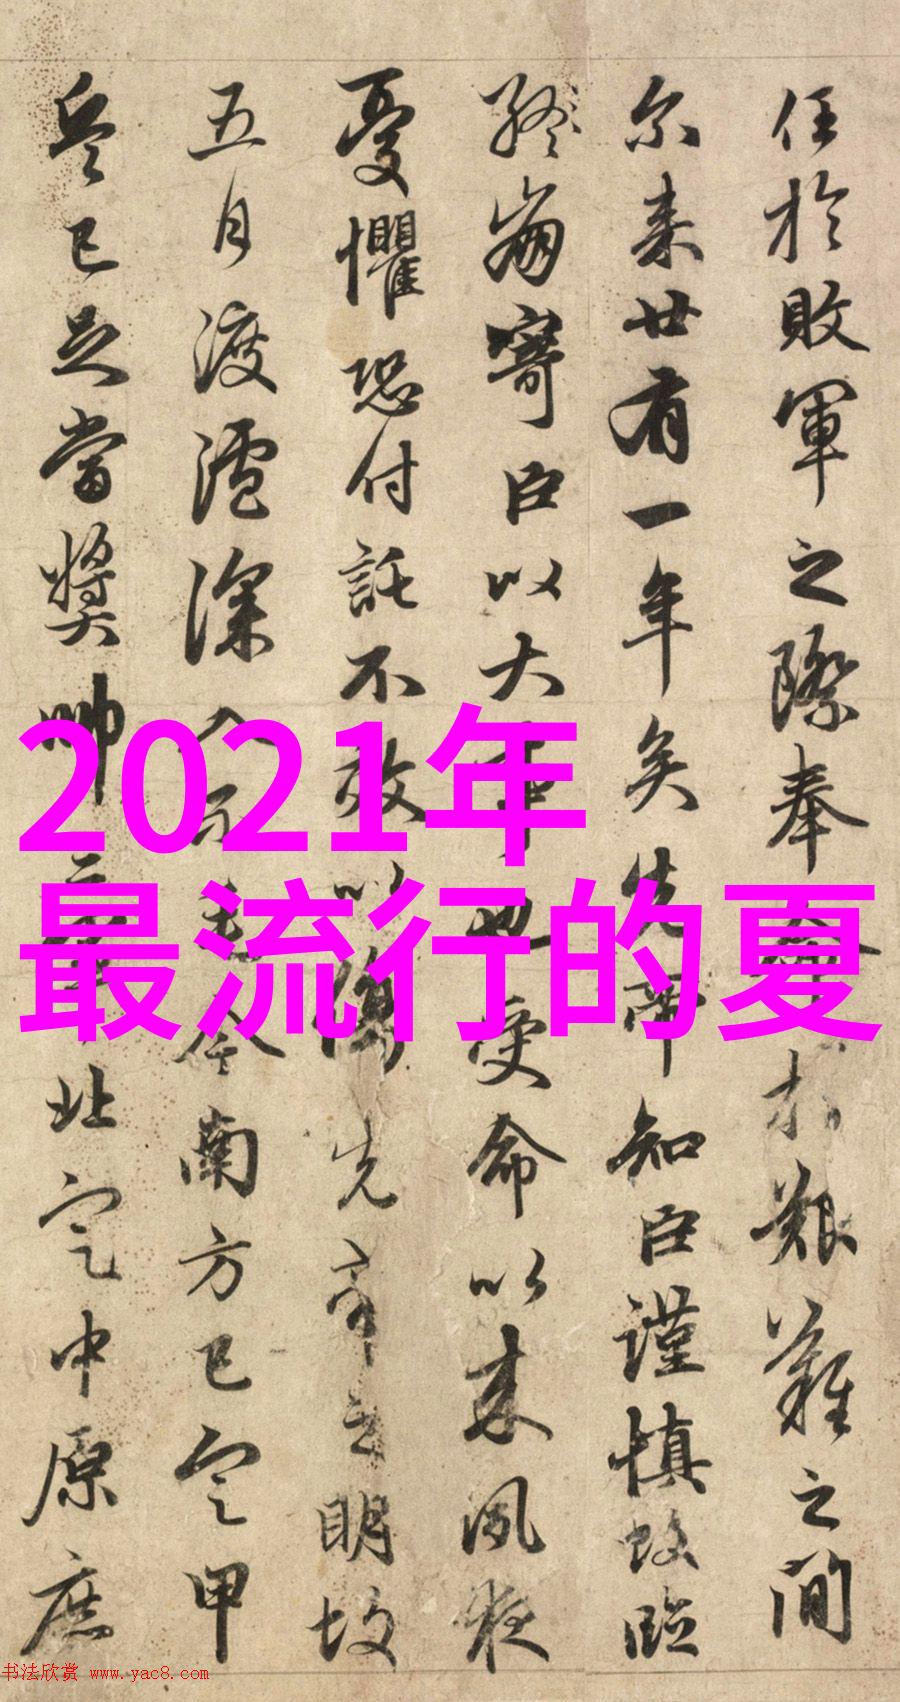 任於敗軍之際奉命於艱難之間
尔来廿有一年矣先帝知臣謹慎故臨
終崩寄臣以大事也受命以来夙夜
憂懼恐付託不效以傷先帝之明故
五月渡瀘深入不毛今南方已定甲
兵已足當獎帥三軍北定中原庶
2021年
最流行的夏
书法欣赏 www.yac8.com